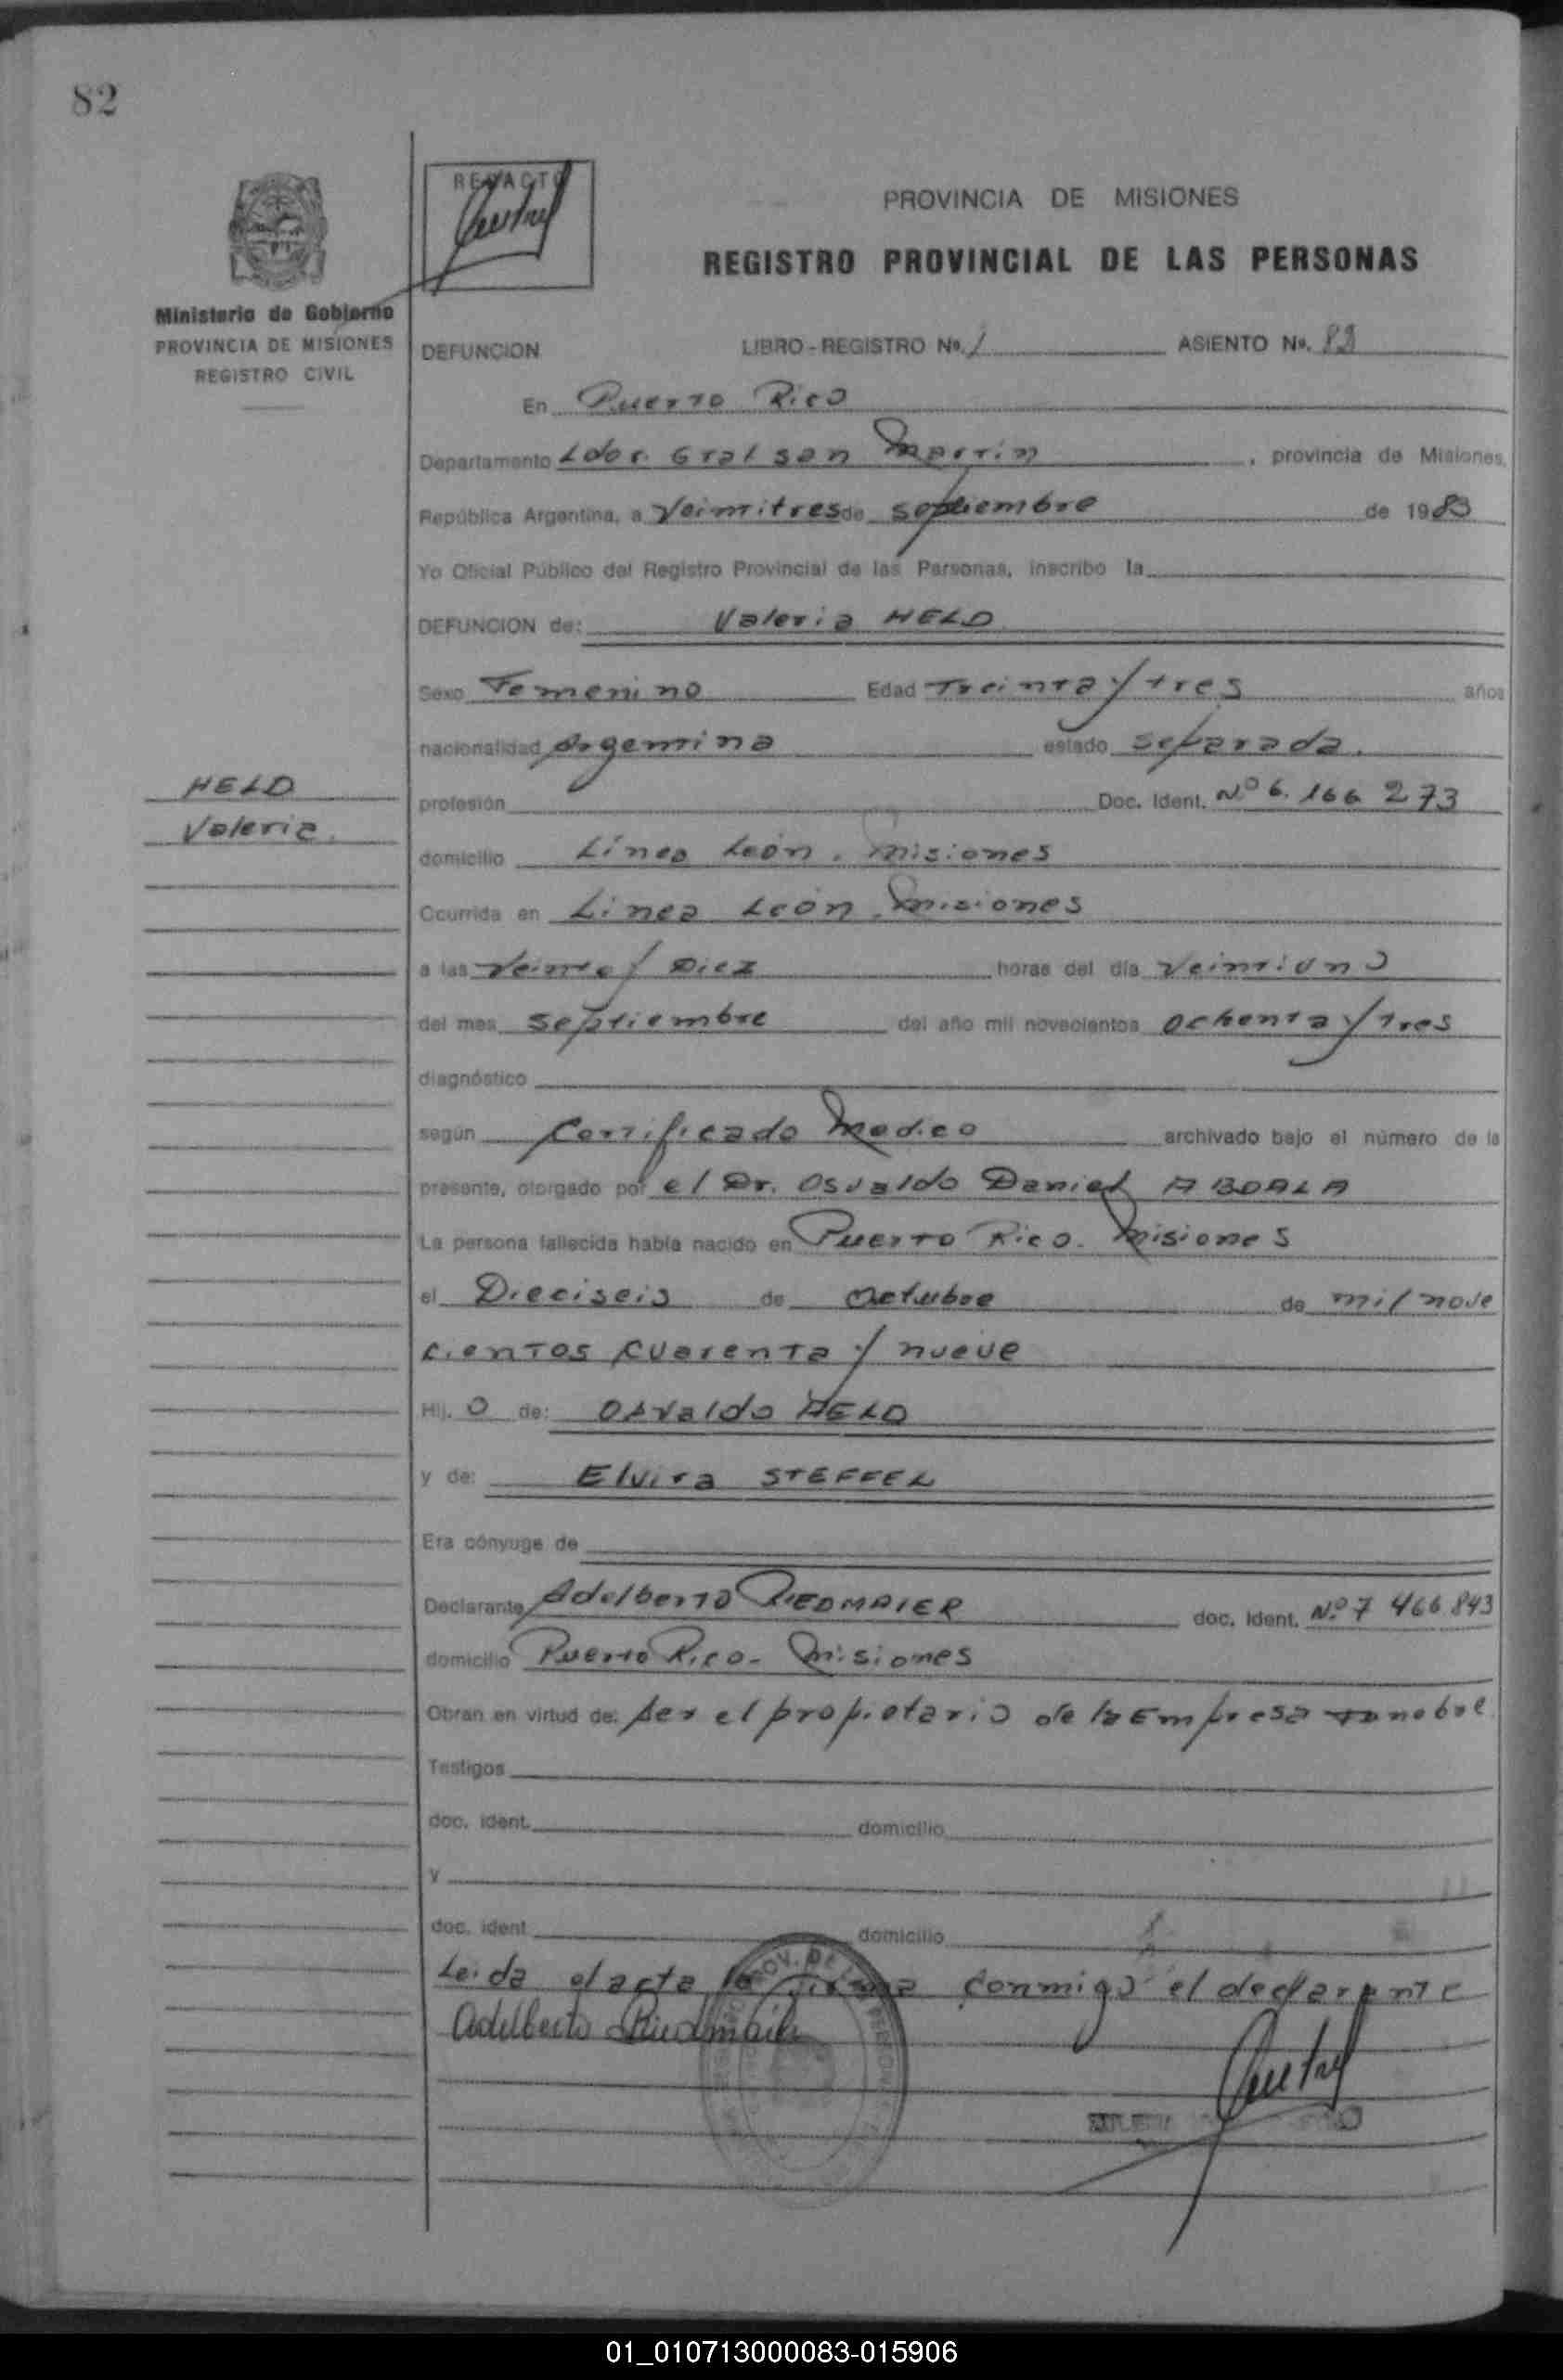 82
REDACTO
PROVINCIA DE MISIONES
REGISTRO PROVINCIAL DE LAS PERSONAS
Ministerio de Gobierno
PROVINCIA DE MISIONES
REGISTRO CIVIL
DEFUNCION LIBRO-REGISTRO No. 1 ASIENTO No. 82
En Puerto Rico
Departamento Ldor. Gral san Martin, provincia de Misiones,
República Argentina, a Veintitres de septiembre de 1983
Yo Oficial Público del Registro Provincial de las Personas, inscribo la
DEFUNCION de: Valeria HELD
Sexo Femenino Edad Treinta y tres años
nacionalidad Argentina estado separada.
HELD
Valeria.
profesión Doc. Ident. Nº 6.166 273
domicilio Línea León. misiones
Ocurrida en Linea León. misiones
a las Veinte y Diez horas del día Veintiuno
del mes septiembre del año mil novecientos ochenta y tres
diagnóstico
según Certificado Medico archivado bajo el número de la
presente, otorgado por el Dr. Osvaldo Daniel ABDALA
La persona fallecida había nacido en Puerto Rico. Misiones
el Dieciseis de octubre de mil nove
cientos cuarenta y nueve
Hij. o de: Osvaldo HELD
y de: Elvira STEFFEL
Era cónyuge de
Declarante Adelberto RIEDMAIER doc. Ident. Nº 7 466.843
domicilio Puerto Rico- Misiones
Obran en virtud de: ser el propietario de la Empresa funebre
Testigos
doc. ident. domicilio
y
doc. ident domicilio
Leida el acta la firma conmigo el declarante
Adelberto Riedmaier
01_010713000083-015906